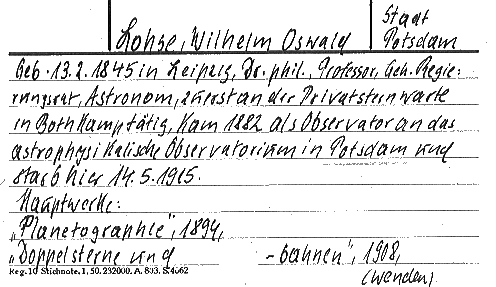 Lohse, Wilhelm Oswald
Staat
Potsdam
Geb. 13.2.1845 in Leipzig, Dr. phil., Professor, Geh. Regie-
rungsrat, Astronom, zuerst an der Privatsternwarte
in Bothkamp tätig, Kam 1882 als Observator an das
astrophysikalische Observatorium in Potsdam und
starb hier 14.5.1915.
Hauptwerke:
„Planetographie", 1894,
„Doppelsterne und -bahnen", 1908,
(wenden)
Reg. 10 Stichnote, 1, 50. 232000. A. 803. S. 4062